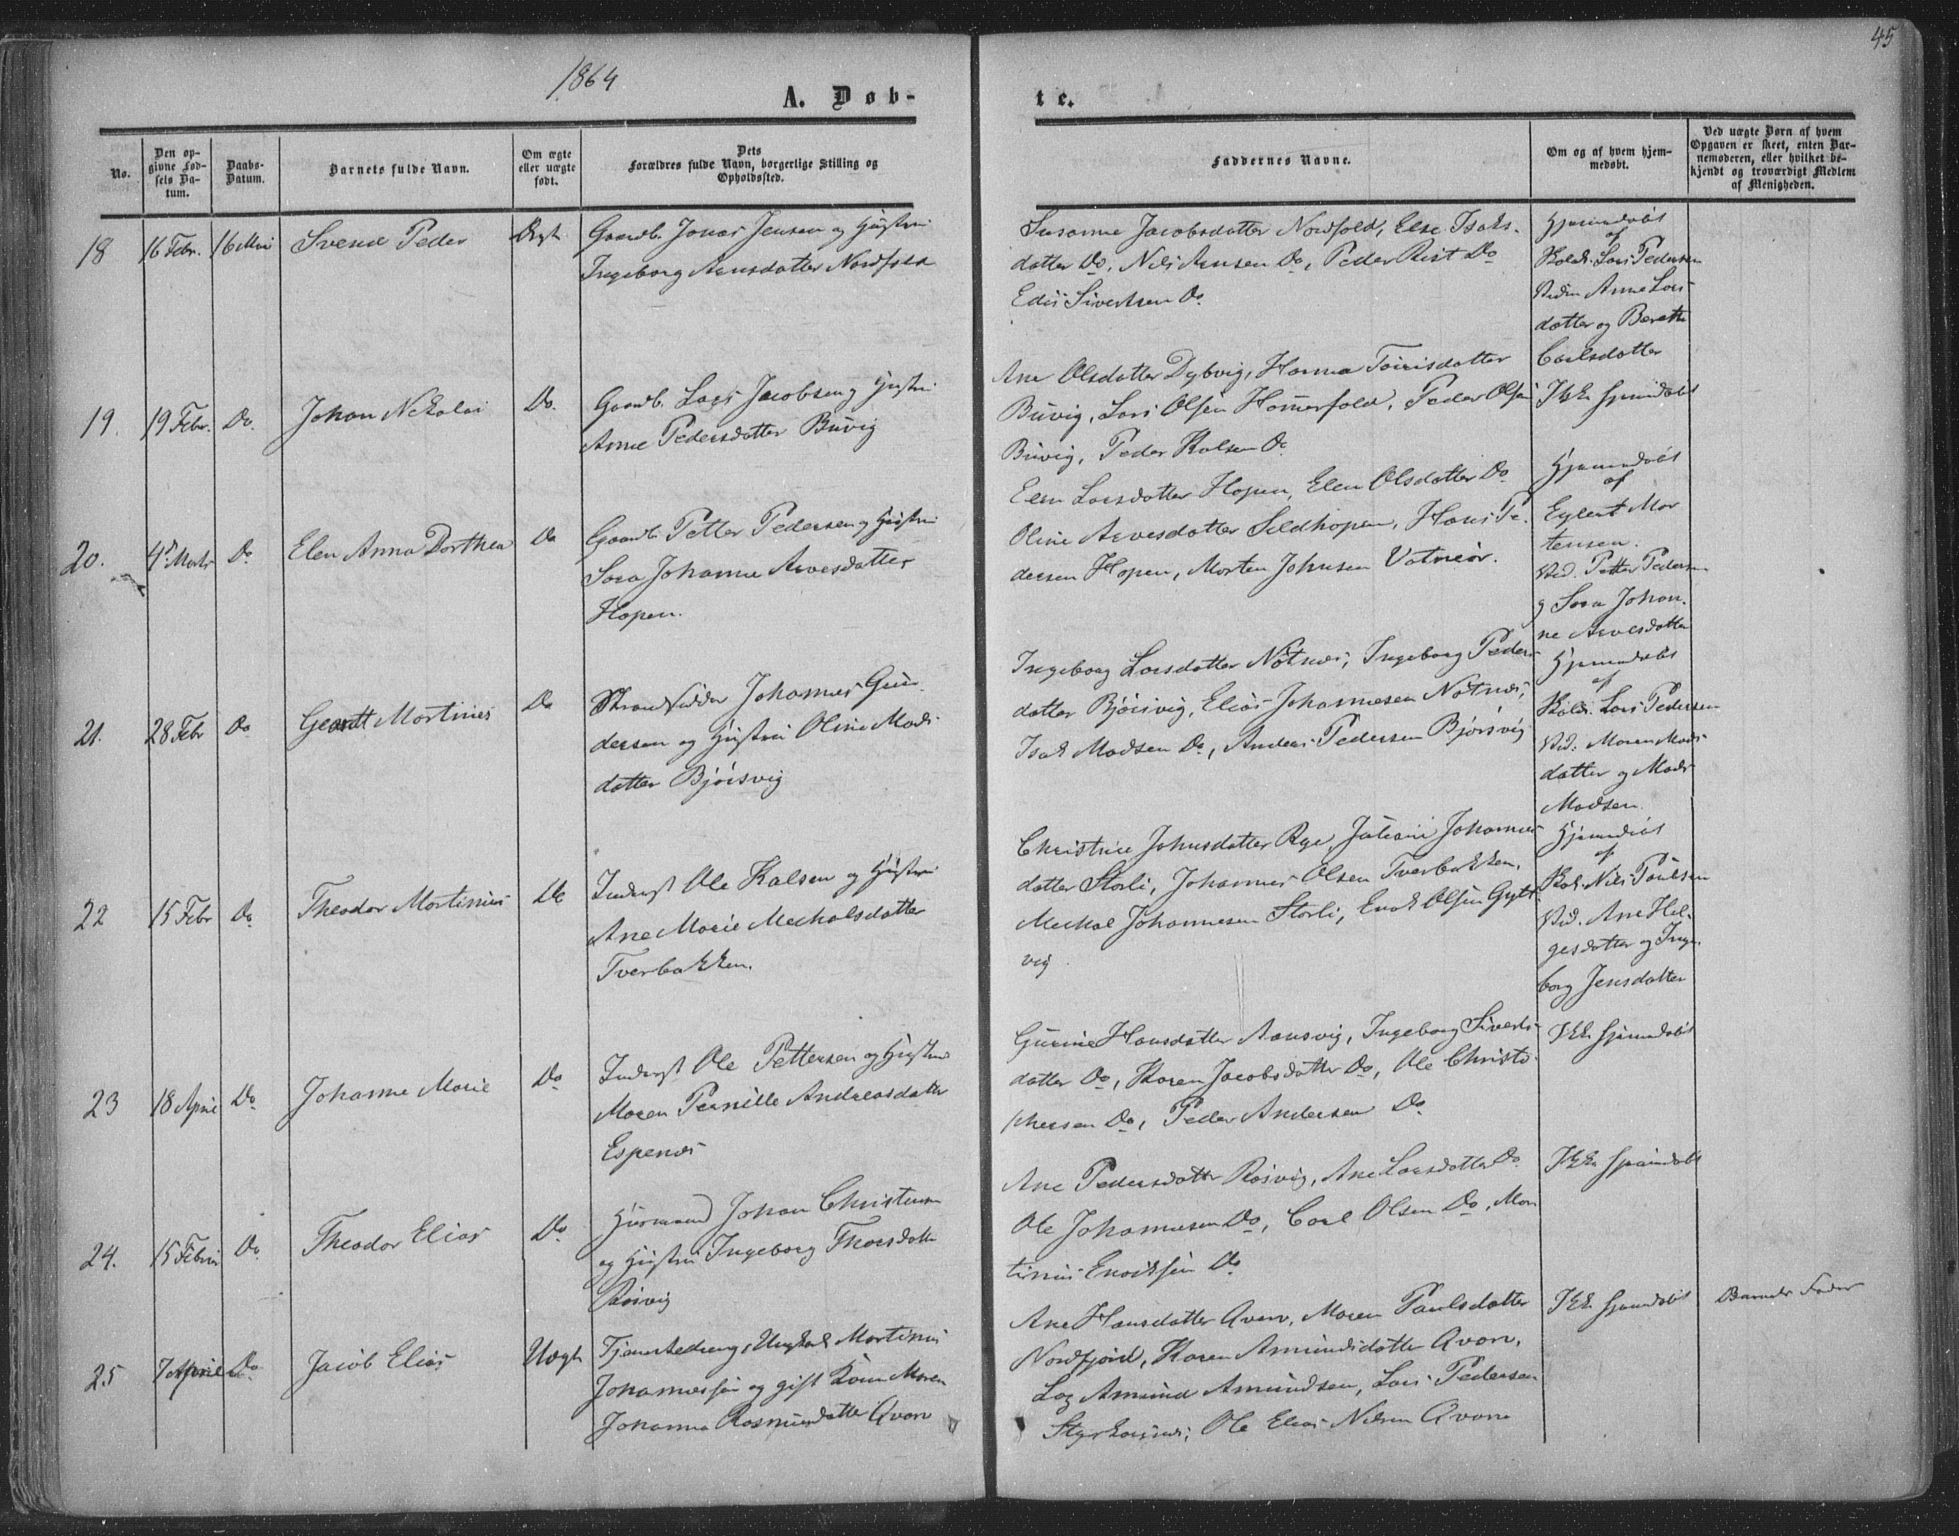 1864
45
A. Døb-
te.
No.
Den op-
givne Fød-
sels Da-
tum.
Daabs-
Datum.
Barnets fulde Navn.
Om ægte
eller uægte
født.
Dets
Forældres fulde Navn, borgerlige Stilling og
Opholdssted.
Faddernes Navne.
Om og af hvem hjem-
medøbt.
Ved uægte Børn af hvem
Opgaven er skeet, enten Bar-
nemoderen, eller hvilket be-
kjendt og troværdigt Medlem
af Menigheden.
18 16 Febr. 16 Mai Svend Peder Ægt.
Gaardb. Jonas Jensen og Hustru
Ingeborg Arnsdatter Nordfold
Susanne Jacobsdatter Nordfold, Else Isaks-
datter Do, Nils Arnsen Do, Peder Rist Do
Edis Sivertsen Do
Hjemmedøbt
af
Lars Pedersen
Anne Lars
datter og Bereth
Carlsdatter
19. 19 Febr. Do. Johan Nekolai Do.
Gaardb. Lars Jacobsen og Hustru
Anne Pedersdatter Buvig
Ane Olsdatter Dybvig, Hanna
Buvig, Lars Olsen Homerfold, Peder Olsen
Buvig, Peder Kalsen Do
Ikke hjemmedøbt
20. 4de Marts Do Elen Anna Dorthea Do
Gaardb. Petter Pedersen og Hustru
Sara Johanne Arvesdatter
Hopen.
Elen Larsdatter Hopen, Elen Olsdatter Do
Oline Arvesdatter Sildhopen, Hans Pe-
dersen Hopen, Morten Johnsen Vatnvår.
Hjemmedøbt
af
Eylert Mor
tensen.
Vid. Petter Pedersen
og Sara Johan-
ne Arvesdatter
21. 28 Febr Do Gerardt Mortinus Do
Strandsidder Johannes Gun-
dersen og Hustru Oline Mads
datter Bjørsvig
Ingeborg Larsdatter Nøtnes, Ingeborg Peders
datter Bjørsvig, Elias Johannesen Nøtnes,
Isak Madsen Do, Anders Pedersen Bjørsvig
Hjemmedøbt
af
Lars Pedersen
Vid. Maren Mads
datter og Mads
Madsen.
22 15 Febr Do Theodor Mortinus Do
Inderst Ole Kalsen og Hustru
Ane Marie Mechalsdatter
Tverbakken.
Christine Johnsdatter Rye, Juliane Johannes
datter Storli, Johannes Olsen Tverbakken,
Mechal Johannesen Storli, Enok Olsen Gylt-
vig.
Hjemmedøbt
af
Nils Paulsen
Vid. Ane Hel-
gesdatter og Inge-
borg Jensdatter
23 18 April Do Johanne Marie Do
Inderst Ole Pettersen og Hustru
Maren Pernille Andreasdatter
Espenes
Gurine Hansdatter Aansvig, Ingeborg Siverts
datter Do, Karen Jacobsdatter Do, Ole Christo-
phersen Do, Peder Andersen Do
Ikke hjemmedøbt
24. 15 Februar Do Theodor Elias Do
Huusmand Johan Christensen
og Hustru Ingeborg Thorsdatter
Røsvig
Ane Pedersdatter Røsvig, Ane Larsdatter Do
Ole Johannesen Do, Carl Olsen Do, Mar
tinus Enoksen Do
Ikke hjemmedøbt
25 7 April Do Jacob Elias Uægt
Tjenestedreng, Ungkarl Mortinus
Johannessen og gift Kone Maren
Johanna Rasmusdatter Qvarv
Ane Hansdatter Qvarv, Maren Paulsdatter
Nordfjord, Karen Amundsdatter Qvarv,
Amund Amundsen, Lars Pedersen
Styrkesnes, Ole Elias Nilsen Qvarv
Ikke hjemmedøbt
Barnets Fader